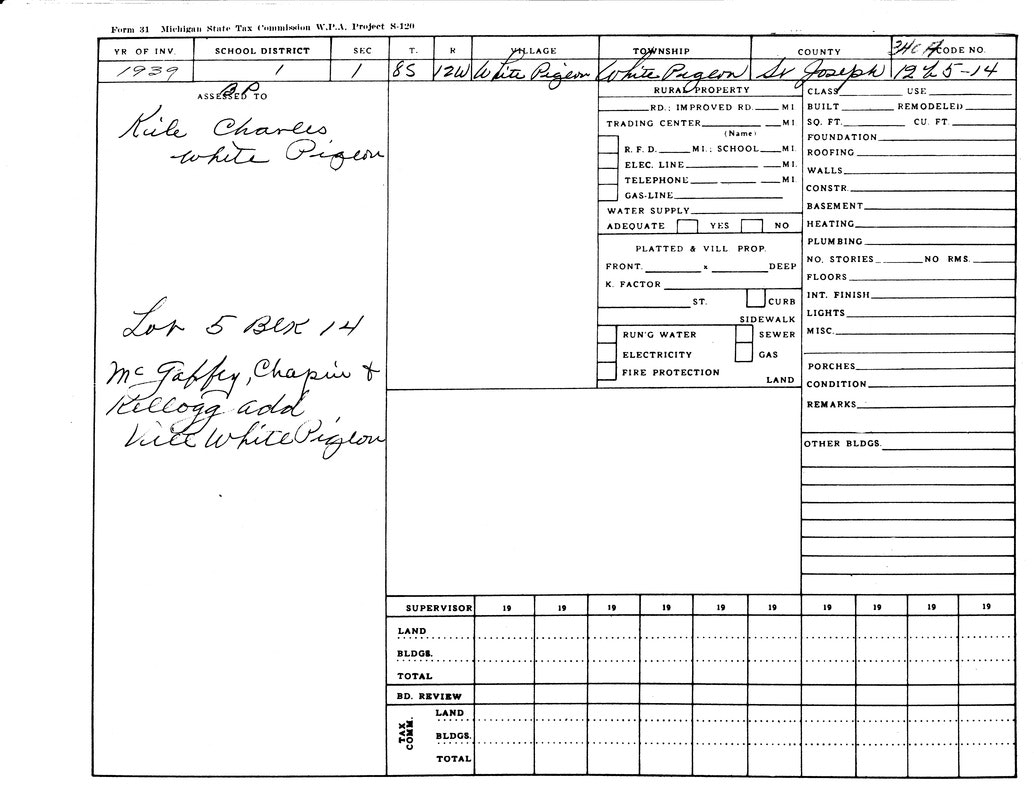 Form 31 Michigan State Tax Commission W.P.A. Project S-120
YR OF INV. SCHOOL DISTRICT SEC T. R VILLAGE TOWNSHIP COUNTY CODE NO.
1939 1 1 8S 12W White Pigeon White Pigeon St Joseph 12 25-14
ASSESSED TO
B.P.
Charles
White Pigeon
Lot 5 Blk 14
McGaffey, Chapin &
Kellogg add
Vill White Pigeon
RURAL PROPERTY
RD.; IMPROVED RD. MI.
TRADING CENTER MI.
(Name)
R. F. D. MI.; SCHOOL MI.
ELEC. LINE MI.
TELEPHONE MI.
GAS-LINE
WATER SUPPLY
ADEQUATE YES NO
PLATTED & VILL PROP.
FRONT. x DEEP
K. FACTOR
ST. CURB
SIDEWALK
RUN'G WATER SEWER
ELECTRICITY GAS
FIRE PROTECTION
LAND
CLASS USE
BUILT REMODELED
SQ. FT. CU. FT.
FOUNDATION
ROOFING
WALLS
CONSTR.
BASEMENT
HEATING
PLUMBING
NO. STORIES NO RMS.
FLOORS
INT. FINISH
LIGHTS
MISC.
PORCHES
CONDITION
REMARKS
OTHER BLDGS.
SUPERVISOR 19 19 19 19 19 19 19 19 19 19
LAND
BLDGS.
TOTAL
BD. REVIEW
TAX COMM.
LAND
BLDGS.
TOTAL